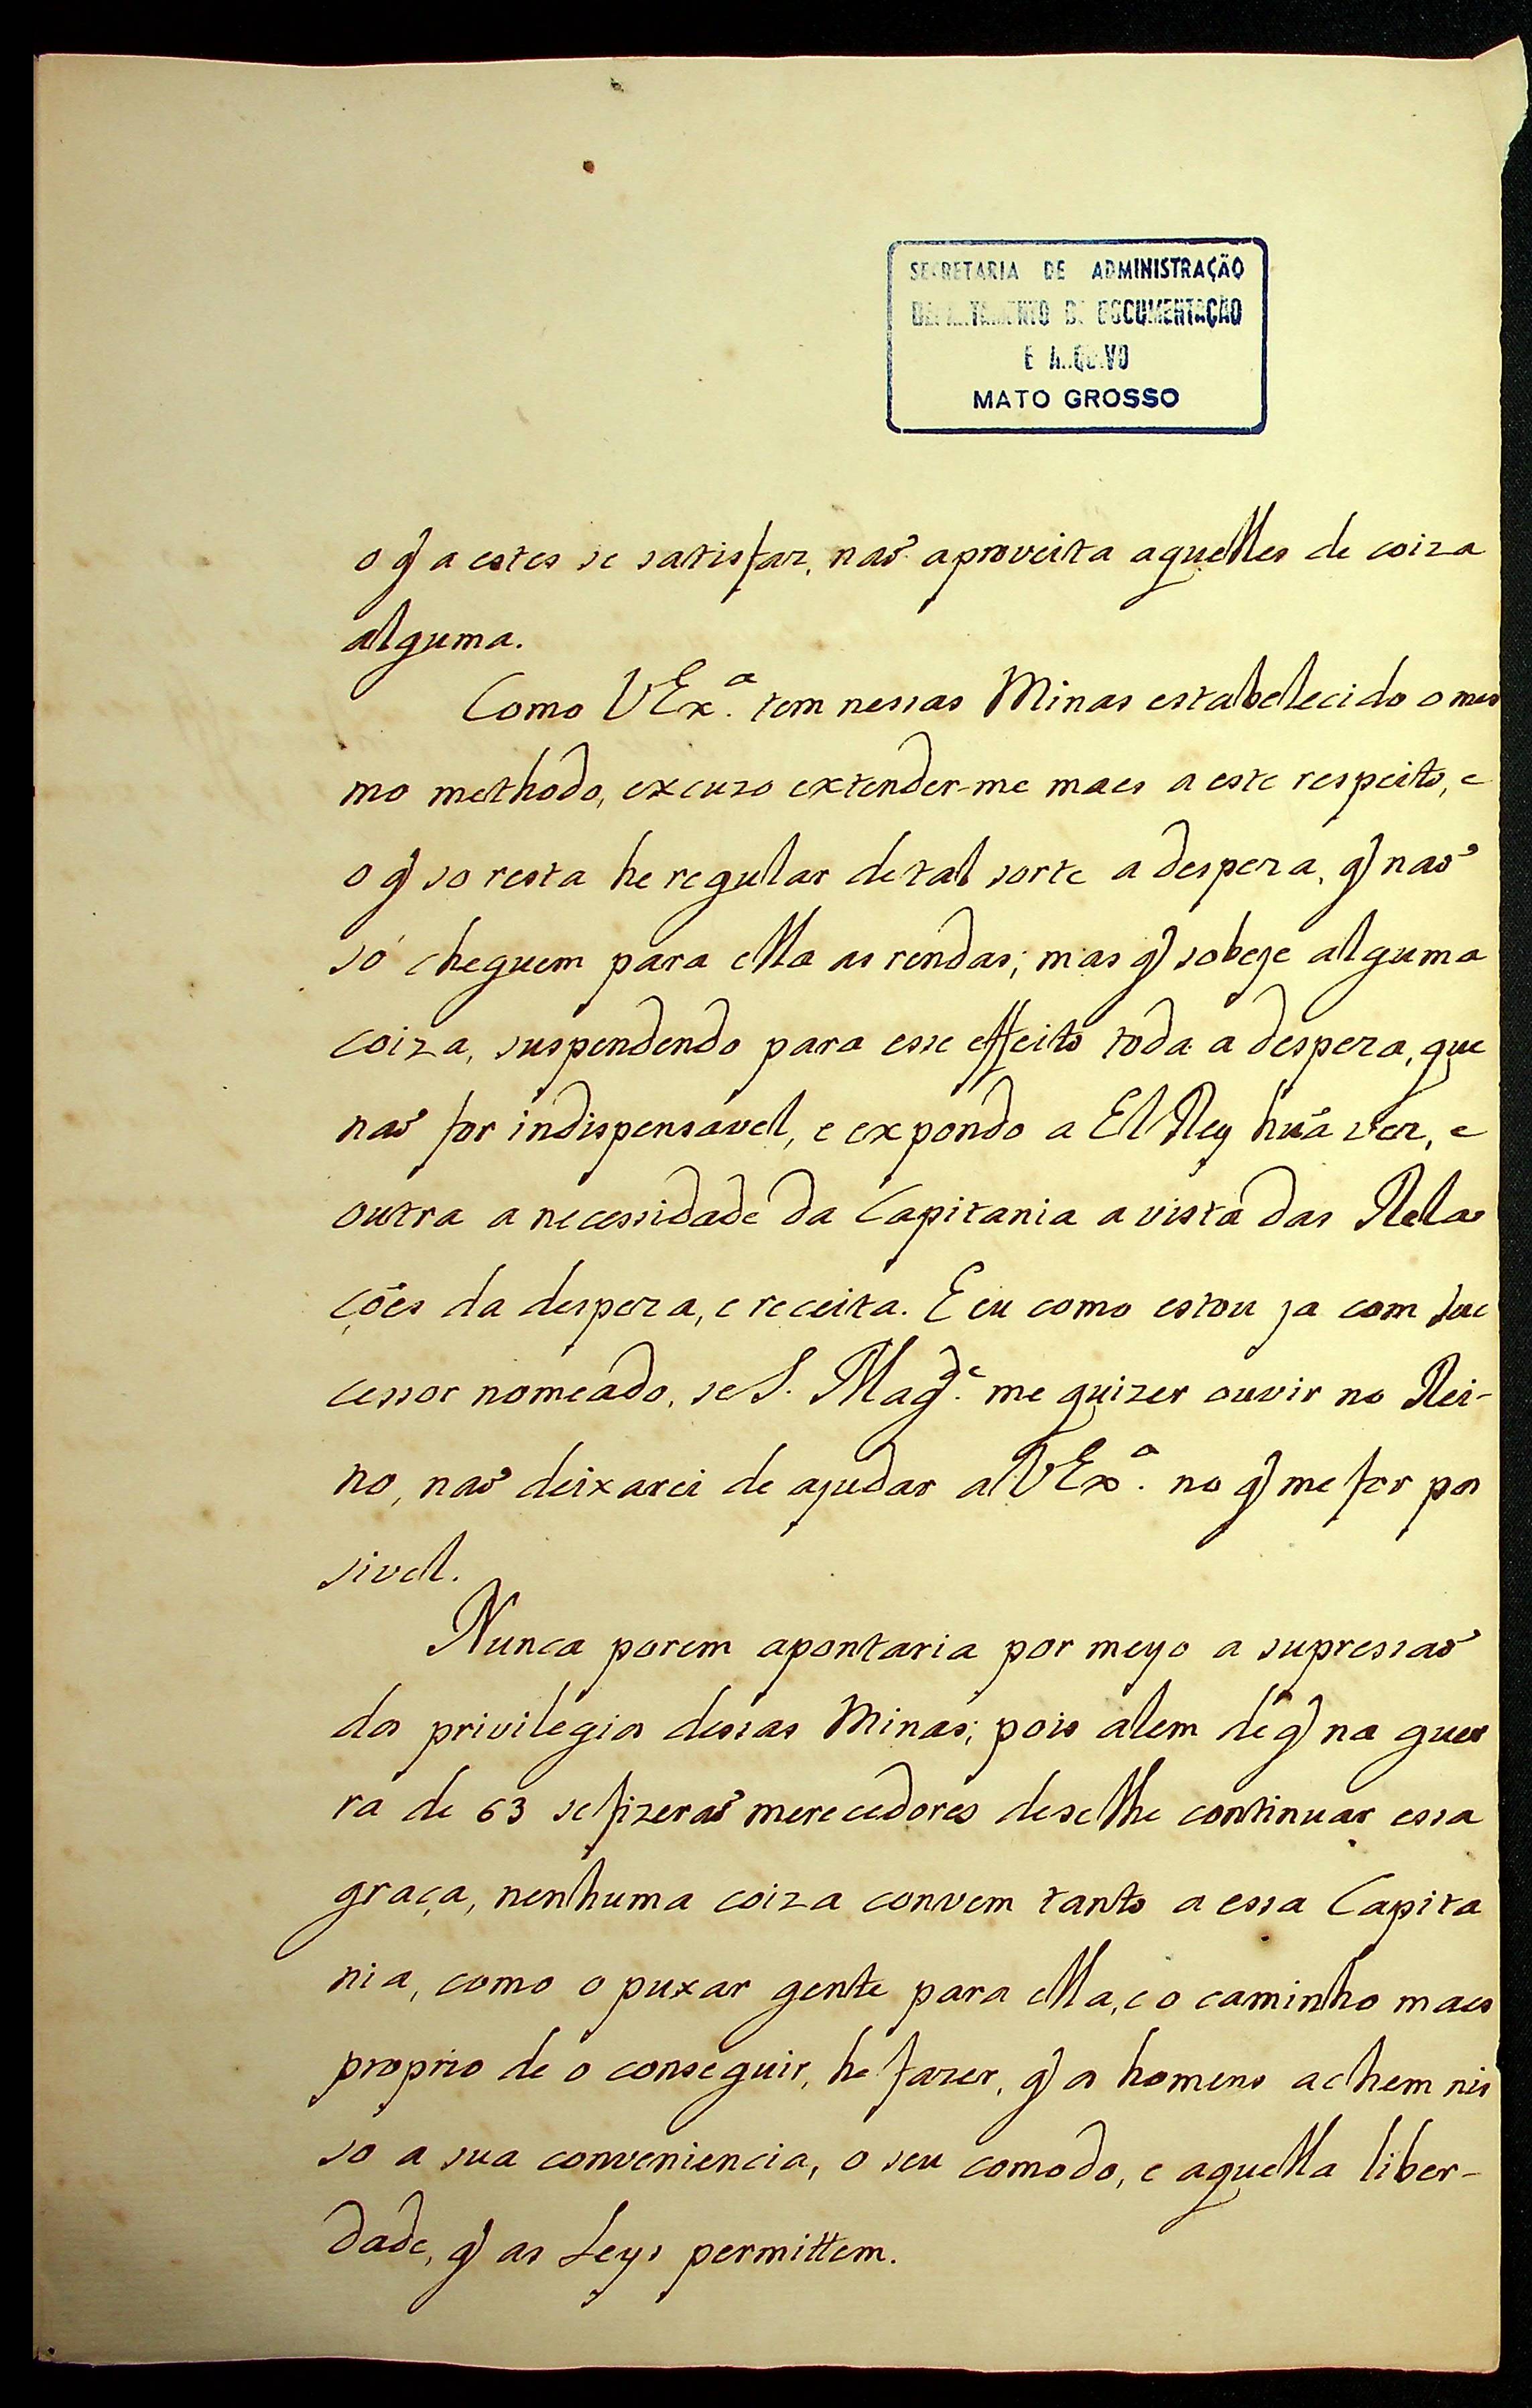 SECRETARIA DE ADMINISTRAÇÃO
DEPARTAMENTO DE DOCUMENTAÇÃO
E ARQUIVO
MATO GROSSO
o q̃ a estes se satisfaz, naõ aproveita aquelles de coiza
alguma.
Como VExª. tem nessas Minas estabelecido o mes
mo methodo, excuzo extender-me maes a este respeito, e
o q̃ so resta he regular de tal sorte a despeza, q̃ naõ
só cheguem para ella as rendas; mas q̃ sobeje alguma
coiza, suspendendo para esse effeito toda a despeza, que
naõ for indispensavel, e expondo a El Rey huã vez, e
outra a necessidade da Capitania a vista das Rela
ções da despeza, e receita. E eu como estou ja com suc
cessor nomeado, se S. Magᵈᵉ. me quizer ouvir no Rei-
no, naõ deixarei de ajudar a VExª. no q̃ me for pos
sivel.
Nunca porem apontaria por meyo a supressaõ
dos privilegios dessas Minas; pois alem de q̃ na guer
ra de 63 se fizeraõ merecedores de se lhe continuar essa
graça, nenhuma coiza convem tanto a essa Capita
nia, como o puxar gente para ella, e o caminho maes
proprio de o conseguir, he fazer, q̃ os homens achem nis
so a sua conveniencia, o seu comodo, e aquella liber-
dade, q̃ as Leys permittem.